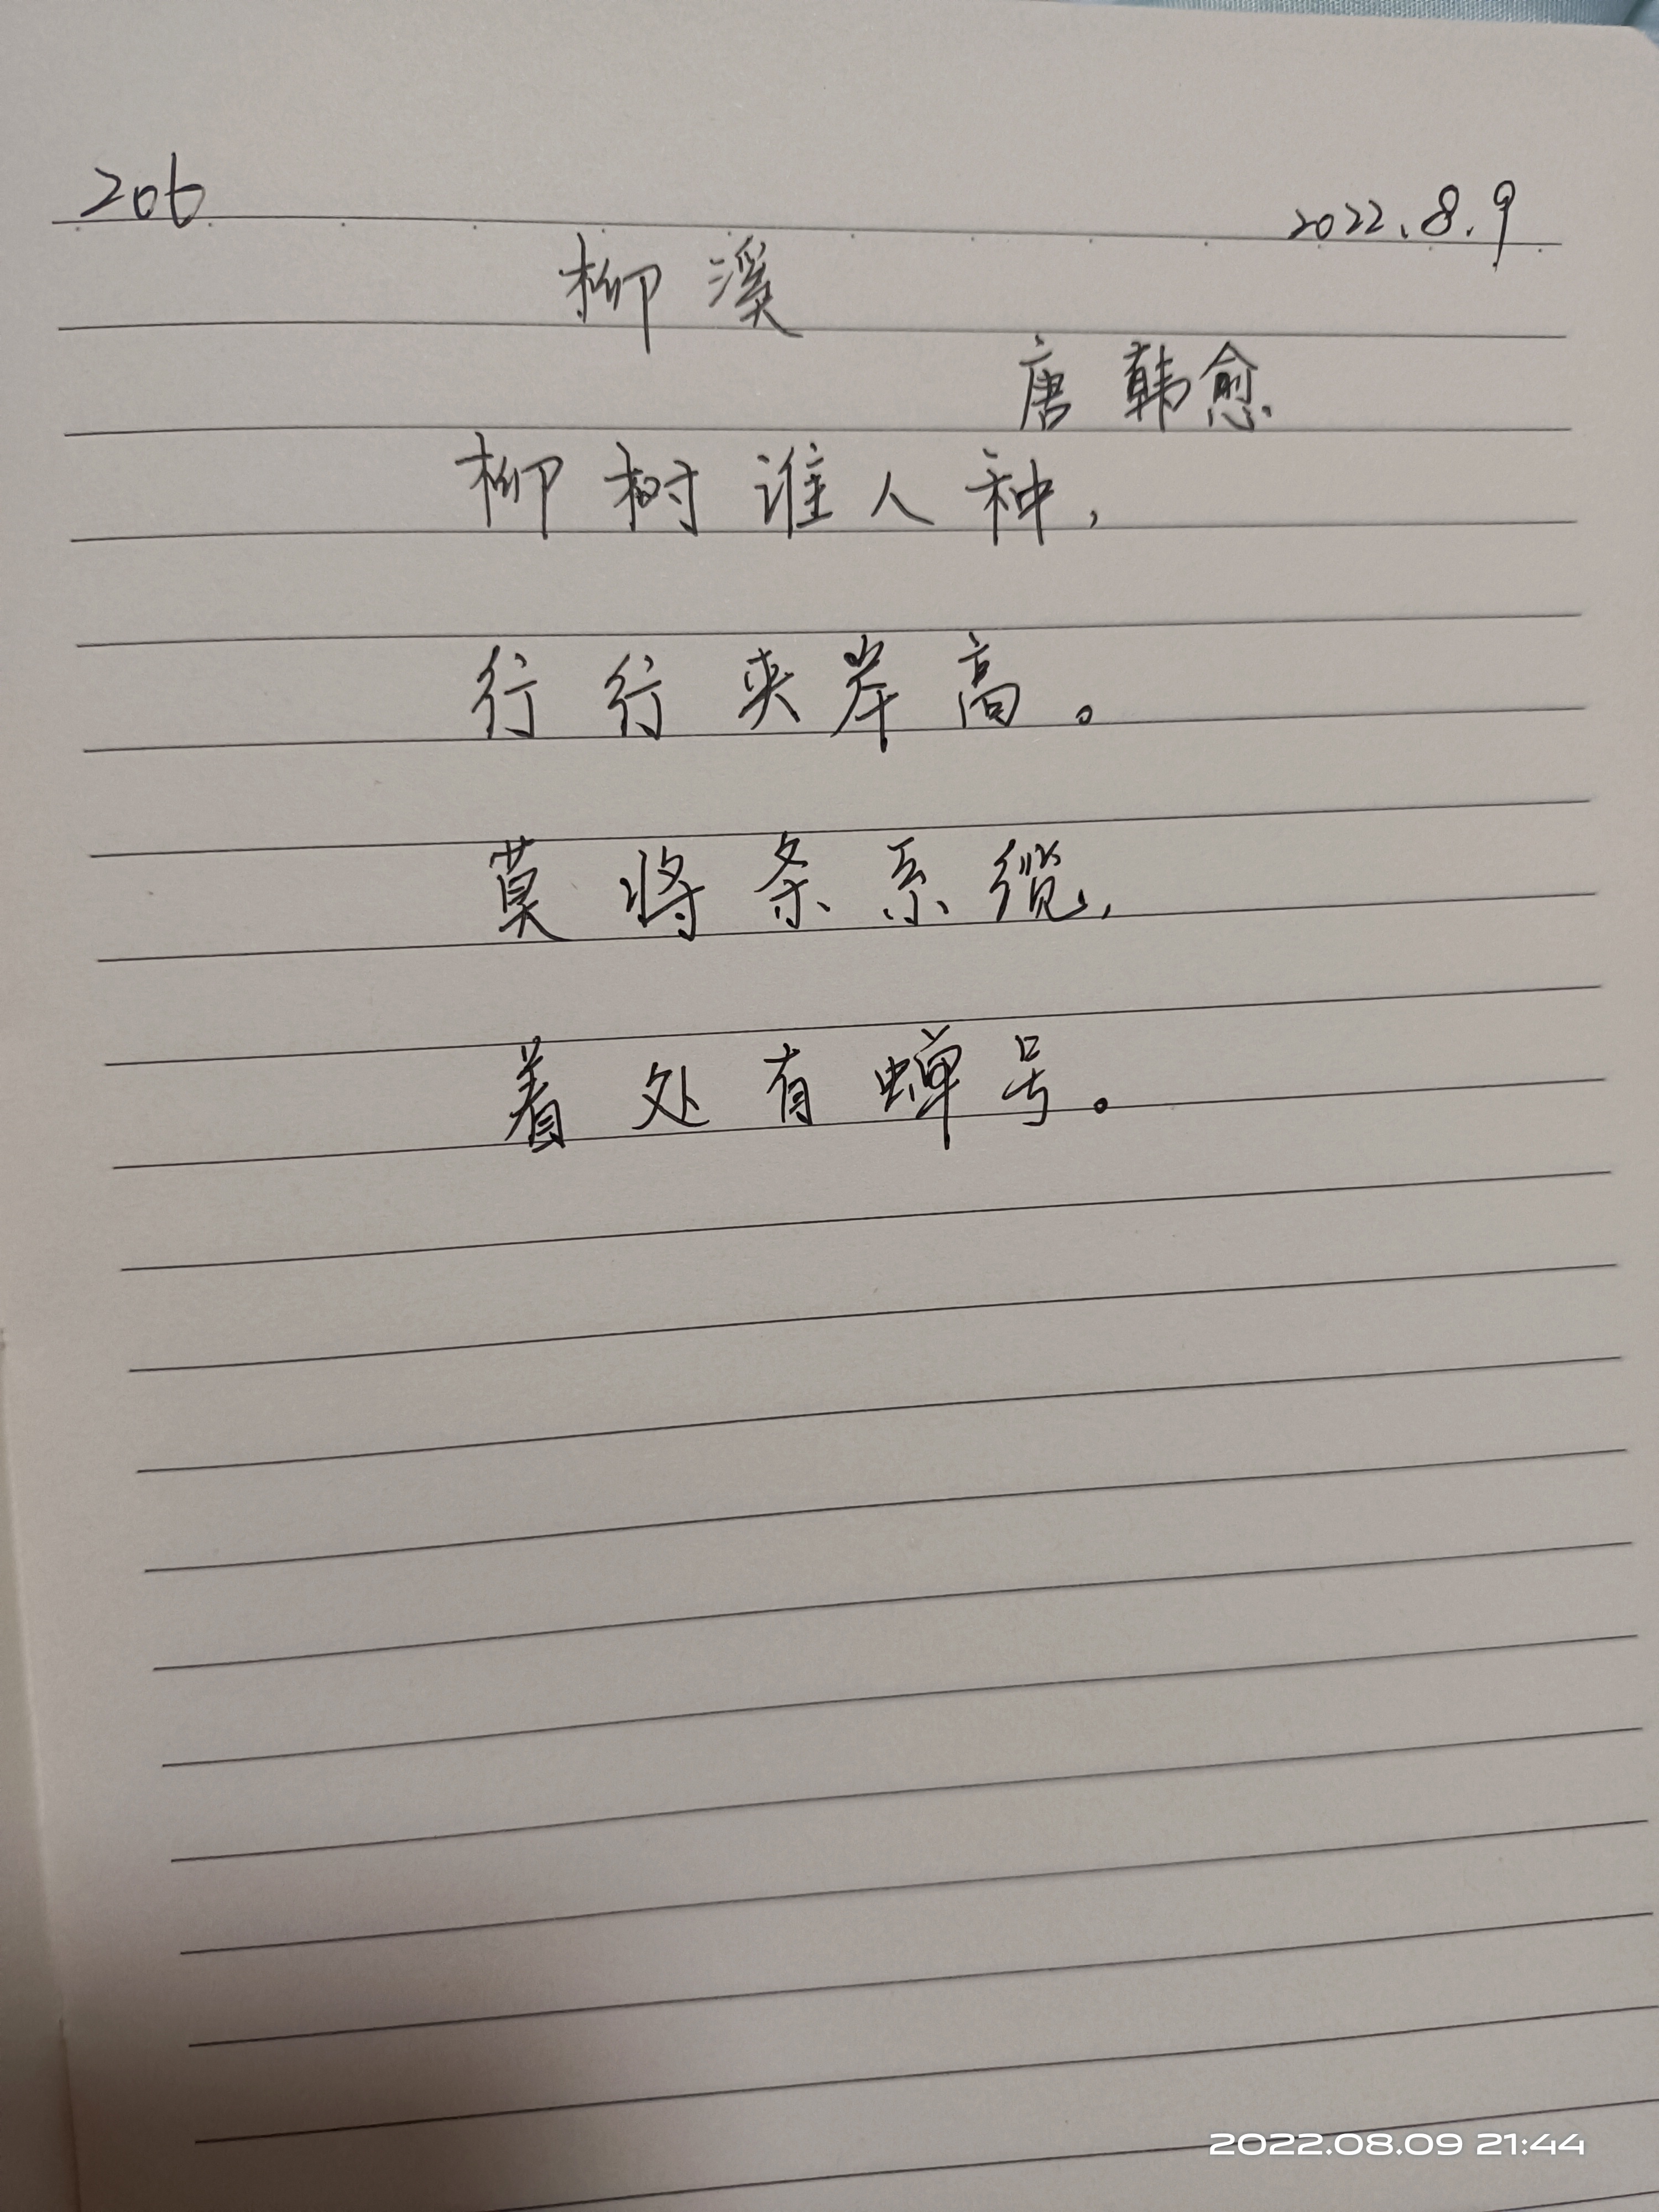 206
2022.8.9
柳溪
唐 韩愈
柳树谁人种，
行行夹岸高。
莫将条系缆，
着处有蝉号。
2022.08.09 21:44